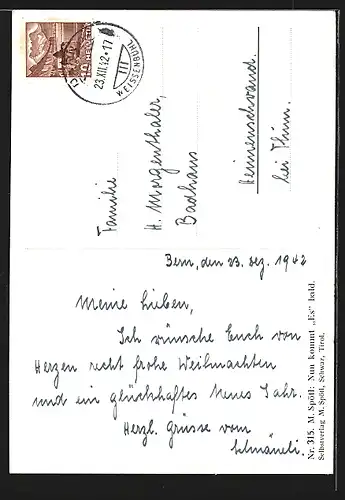 10 HELVETIA
23.XII.42-17
III
WEISSENBÜHL
Familie
H. Morgenthaler,
Badhaus
bei Thun.
Bern, den 23. Dez. 1942
Meine Lieben,
Ich wünsche Euch von
Herzen recht frohe Weihnachten
und ein glückhaftes Neues Jahr.
Herzl. Grüsse vom
Nr. 315. M. Spötl: Nun kommt „Es" bald.
Selbstverlag M. Spötl, Schwaz, Tirol.